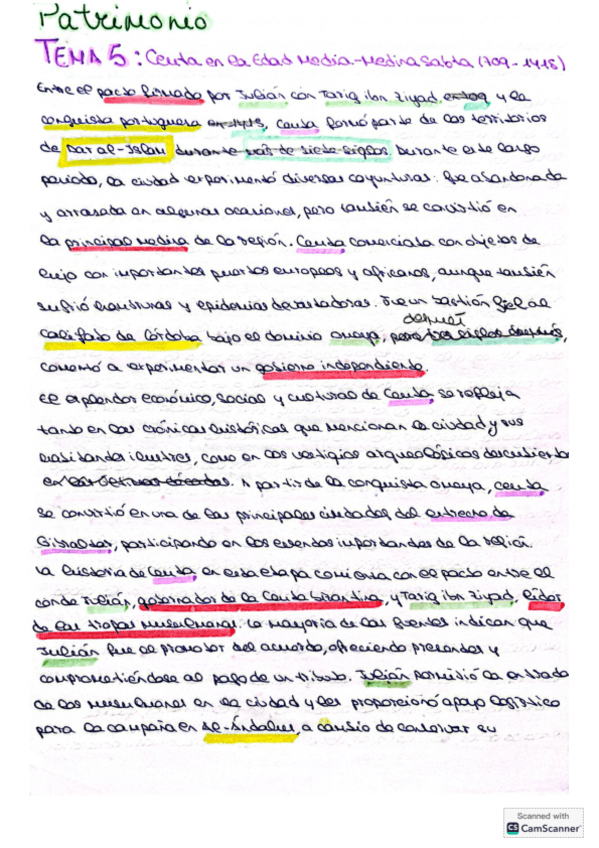 Patrimonio
TEMA 5: Ceuta en la Edad Media-Medina Sabta (709-1415)
Entre el pacto firmado por Julián con Tariq ibn Ziyad, en 709 y la
conquista portuguesa en 1415, Ceuta formó parte de los territorios
de Dar al-Islam durante más de siete siglos. Durante este largo
período, la ciudad experimentó diversas coyunturas: fue abandonada
y arrasada en algunas ocasiones, pero también se convirtió en
la principal medina de la región. Ceuta comerciaba con objetos de
lujo con importantes puertos europeos y africanos, aunque también
sufrió hambrunas y epidemias devastadoras. Fue un bastión fiel al
califato de Córdoba bajo el dominio omeya, pero tres siglos después,
después
comenzó a experimentar un gobierno independiente.
El esplendor económico, social y cultural de Ceuta se refleja
tanto en las crónicas históricas que mencionan la ciudad y sus
habitantes ilustres, como en los vestigios arqueológicos descubiertos
en las últimas décadas. A partir de la conquista omeya, Ceuta
se convirtió en una de las principales ciudades del estrecho de
Gibraltar, participando en los eventos importantes de la región.
La historia de Ceuta en esta etapa comienza con el pacto entre el
conde Julián, gobernador de la Ceuta bizantina, y Tariq ibn Ziyad, líder
de las tropas musulmanas. La mayoría de las fuentes indican que
Julián fue el promotor del acuerdo, ofreciendo presentes y
comprometiéndose al pago de un tributo. Julián permitió la entrada
de los musulmanes en la ciudad y les proporcionó apoyo logístico
para la campaña en al-Ándalus, a cambio de conservar su
Scanned with
CS CamScanner